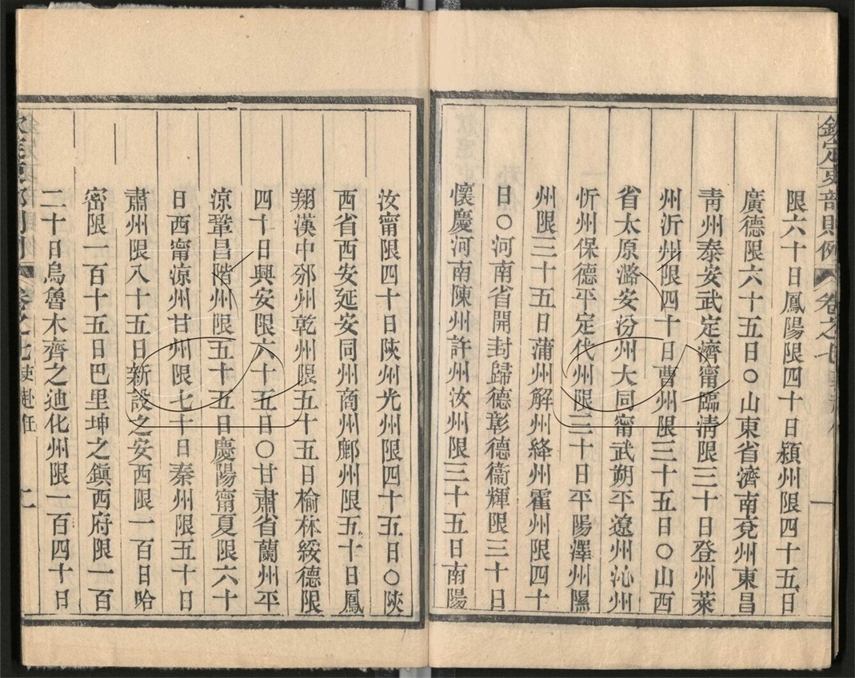 欽定吏部則例 卷之七
限六十日鳳陽限四十日潁州限四十五日
廣德限六十五日○山東省濟南兗州東昌
青州泰安武定濟甯臨清限三十日登州萊
州沂州限四十日曹州限三十五日○山西
省太原潞安汾州大同甯武朔平遼州沁州
忻州保德平定代州限三十日平陽澤州隰
州限三十五日蒲州解州絳州霍州限四十
日○河南省開封歸德彰德衞輝限三十日
懷慶河南陳州許州汝州限三十五日南陽
汝甯限四十日陝州光州限四十五日○陝
西省西安延安同州商州鄜州限五十日鳳
翔漢中邠州乾州限五十五日榆林綏德限
四十日興安限六十五日○甘肅省蘭州平
涼鞏昌階州限五十五日慶陽甯夏限六十
日西甯涼州甘州限七十日秦州限五十日
肅州限八十五日新設之安西限一百日哈
密限一百十五日巴里坤之鎮西府限一百
二十日烏魯木齊之迪化州限一百四十日
卷之七 赴任